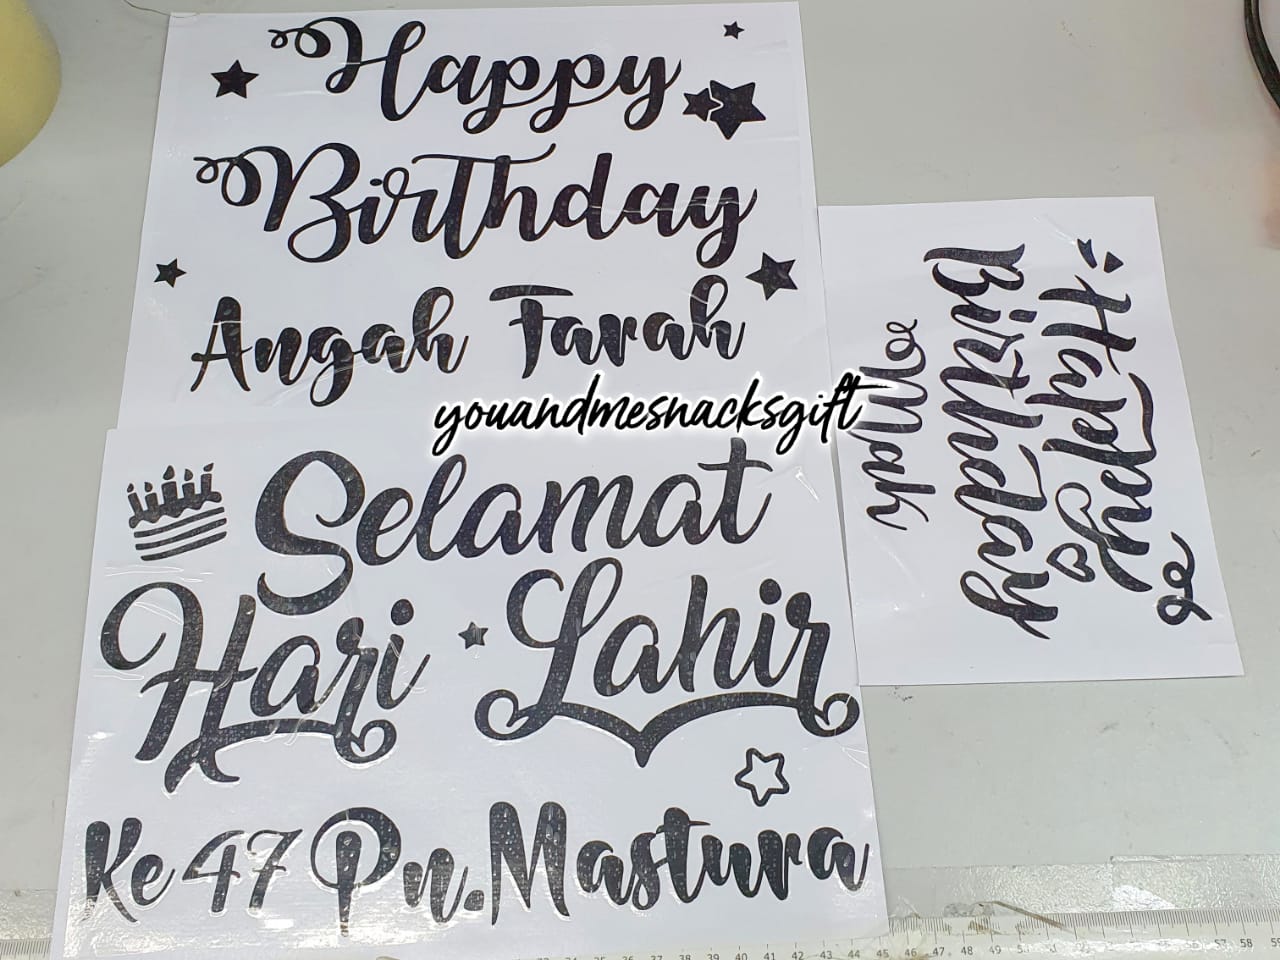 Happy
Birthday
Angah Farah
youandmesnacksgift
Selamat
Hari Lahir
Ke 47 Pn.Mastura
Happy
Birthday
47 48 49 50
57 58 59